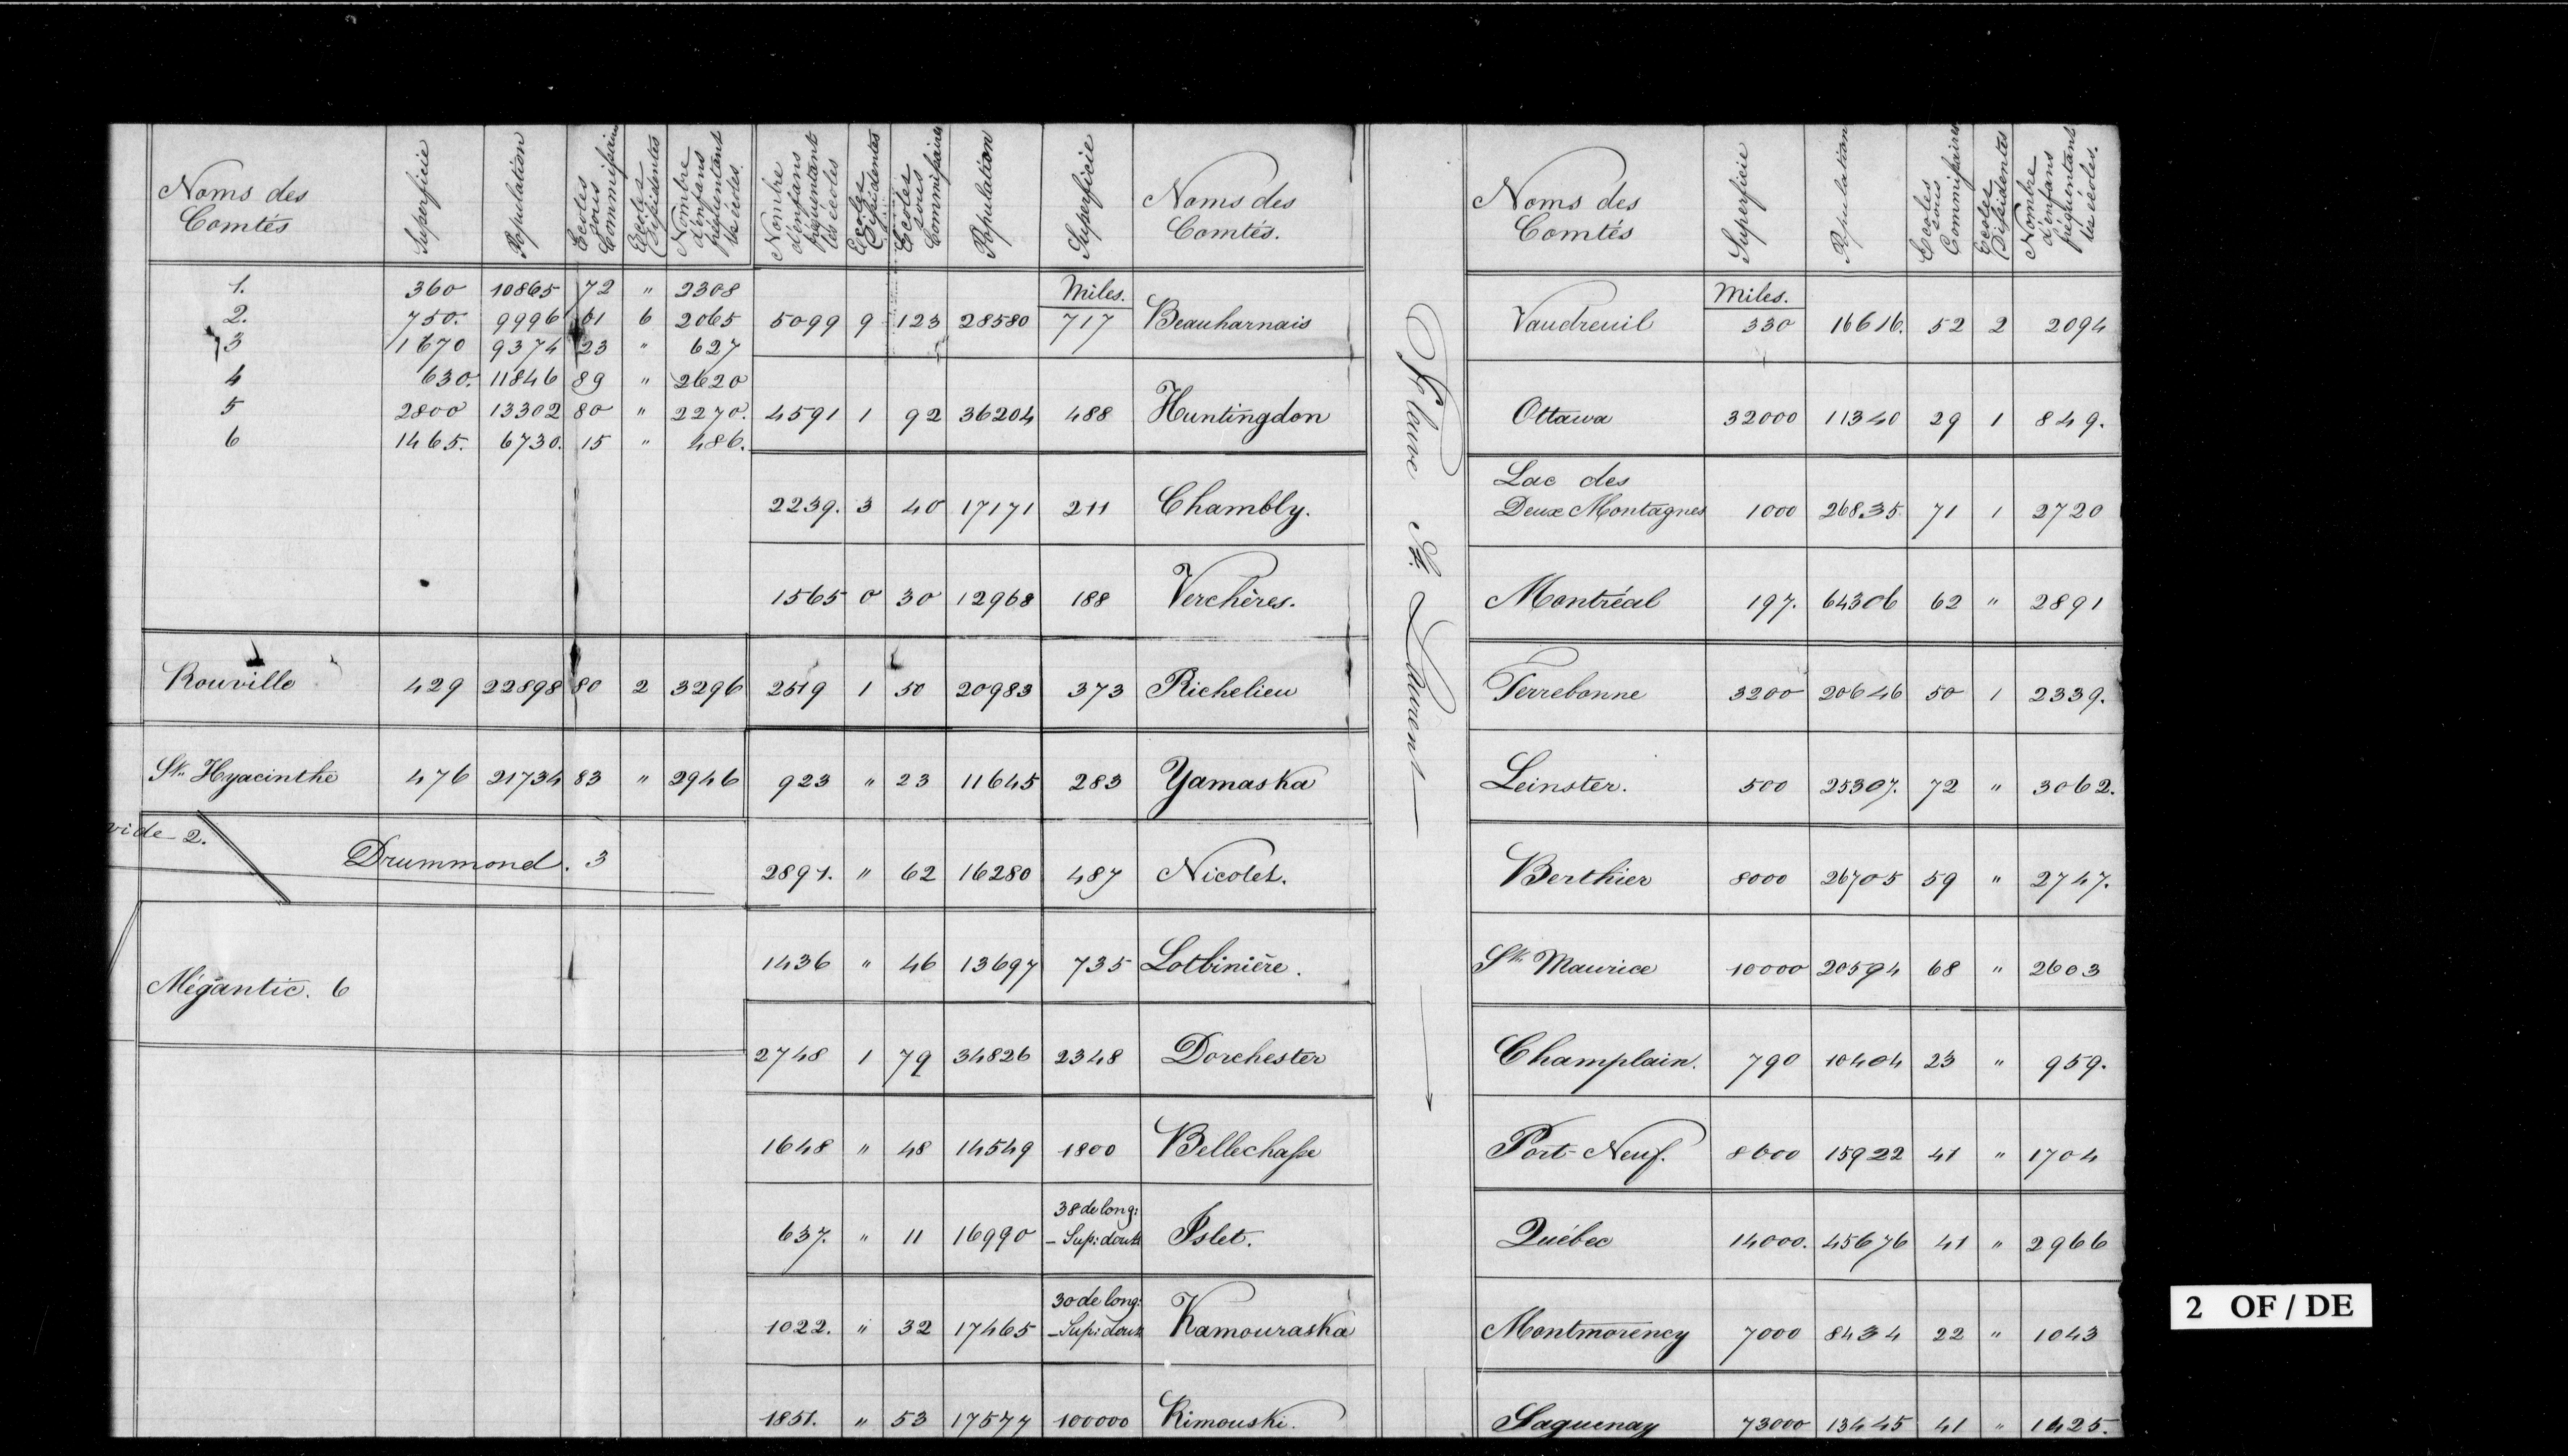 Noms des Comtés | Superficie | Population | Ecoles sous Commissaires | Ecoles Dissidentes | Nombre d'enfans fréquentant les écoles.
1. | 360 | 10865 | 72 | " | 2308
2. | 750. | 9996 | 61 | 6 | 2065
3 | 1670 | 9374 | 23 | " | 627
4 | 630. | 11846 | 89 | " | 2620
5 | 2800 | 13302 | 80 | " | 2270.
6 | 1465. | 6730. | 15 | " | 486.
Rouville | 429 | 22898 | 80 | 2 | 3296
St. Hyacinthe | 476 | 21734 | 83 | " | 2946
vide 2.
Drummond. 3
Mégantic. 6
Nombre d'enfans fréquentant les écoles | Ecoles Dissidentes | Ecoles sous Commissaires | Population | Superficie | Noms des Comtés.
Miles.
5099 | 9 | 123 | 28580 | 717 | Beauharnais
4591 | 1 | 92 | 36204 | 488 | Huntingdon
2239. | 3 | 40 | 17171 | 211 | Chambly.
1565 | 0 | 30 | 12968 | 188 | Verchères.
2519 | 1 | 50 | 20983 | 373 | Richelieu
923 | " | 23 | 11645 | 283 | Yamaska
2891. | " | 62 | 16280 | 487 | Nicolet.
1436 | " | 46 | 13697 | 735 | Lotbinière.
2748 | 1 | 79 | 34826 | 2348 | Dorchester
1648 | " | 48 | 14549 | 1800 | Bellechasse
38 de long:
637. | " | 11 | 16990 | - Sup: dout: | Islet.
30 de long:
1022. | " | 32 | 17465 | - Sup: dout: | Kamouraska
1851. | " | 53 | 17577 | 100000 | Rimouski.
Fleuve St. Laurent
Noms des Comtés | Superficie | Population | Ecoles sous Commissaires | Ecoles Dissidentes | Nombre d'enfans fréquentant les écoles.
Miles.
Vaudreuil | 330 | 16616. | 52 | 2 | 2094
Ottawa | 32000 | 11340 | 29 | 1 | 849.
Lac des
Deux Montagnes | 1000 | 26835. | 71 | 1 | 2720
Montréal | 197. | 64306 | 62 | " | 2891
Terrebonne | 3200 | 20646 | 50 | 1 | 2339.
Leinster. | 500 | 25307. | 72 | " | 3062.
Berthier | 8000 | 26705 | 59 | " | 2747.
St. Maurice | 10000 | 20594 | 68 | " | 2603
Champlain. | 790 | 10404 | 23 | " | 959.
Port-Neuf. | 8600 | 15922 | 41 | " | 1704
Québec | 14000. | 45676 | 41 | " | 2966
Montmorency | 7000 | 8434 | 22 | " | 1043
Saguenay | 73000 | 13445 | 41 | " | 1425.
2 OF / DE